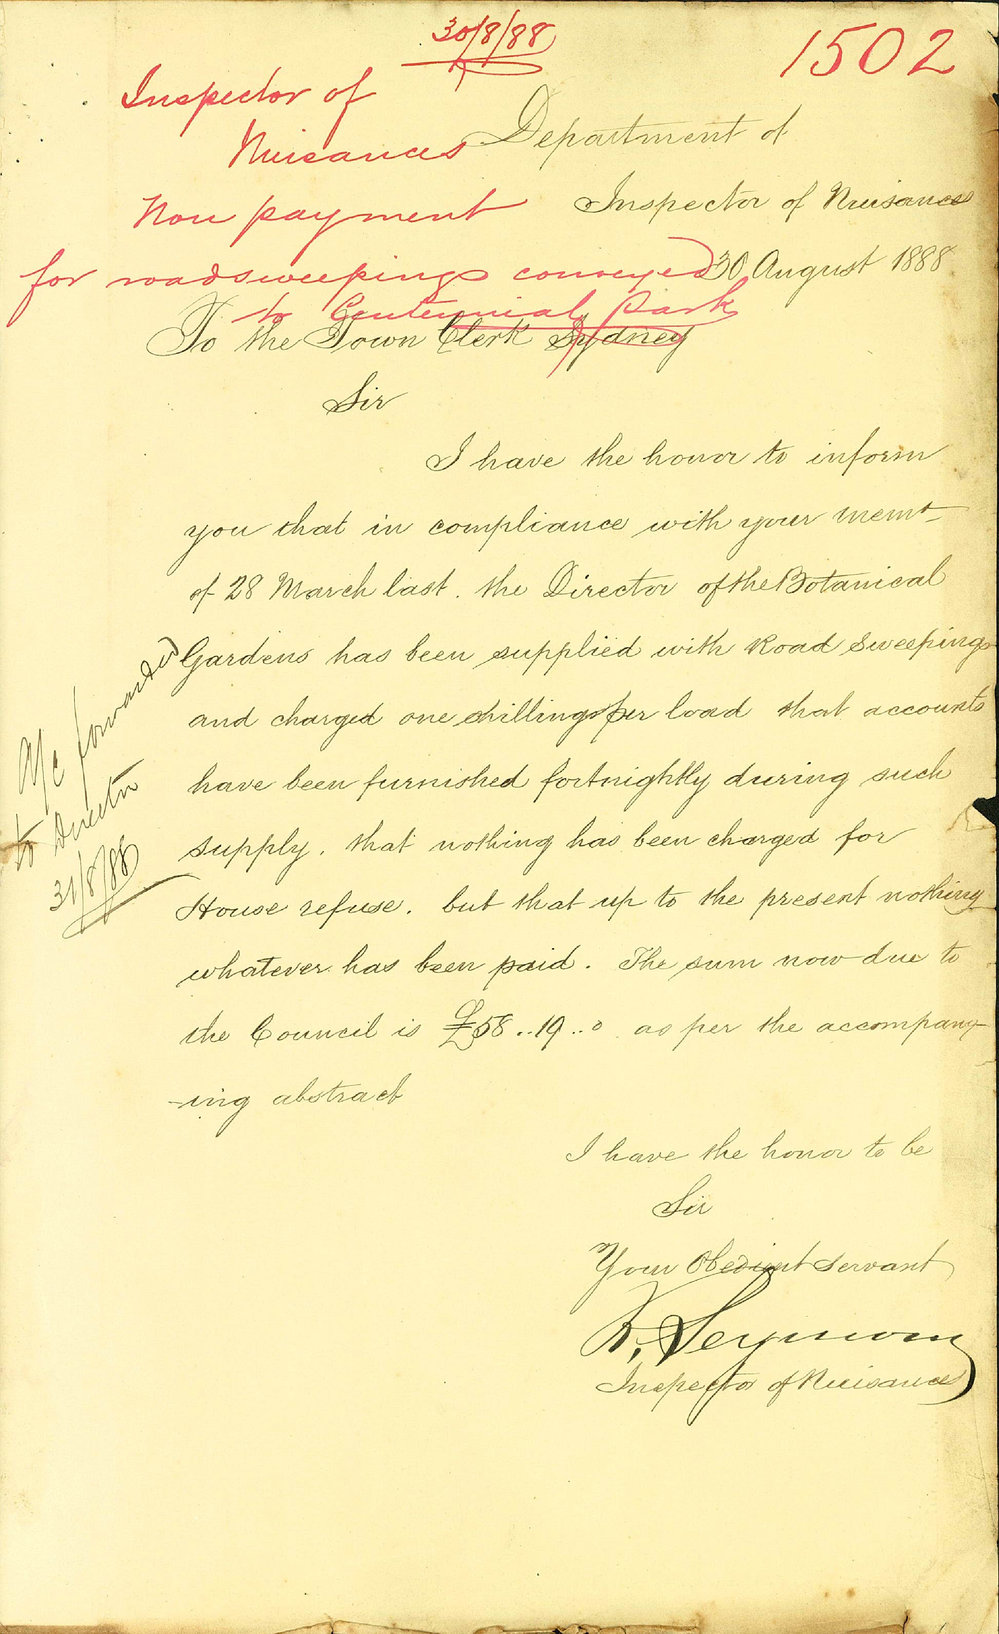 30/8/88
1502
Inspector of
Nuisances
Non payment
for roadsweepings conveyed
to Centennial Park
Department of
Inspector of Nuisances
30 August 1888
To the Town Clerk Sydney
Sir
I have the honor to inform
you that in compliance with your memt
of 28 March last. the Director of the Botanical
Gardens has been supplied with Road Sweepings
and charged one shilling per load that accounts
have been furnished fortnightly during such
supply. that nothing has been charged for
House refuse. but that up to the present nothing
whatever has been paid. The sum now due to
the Council is £58..19..0 as per the accompany-
-ing abstract
A/c forwarded
to Director
31/8/88
I have the honor to be
Sir
Your Obedient Servant
R. Seymour
Inspector of Nuisances